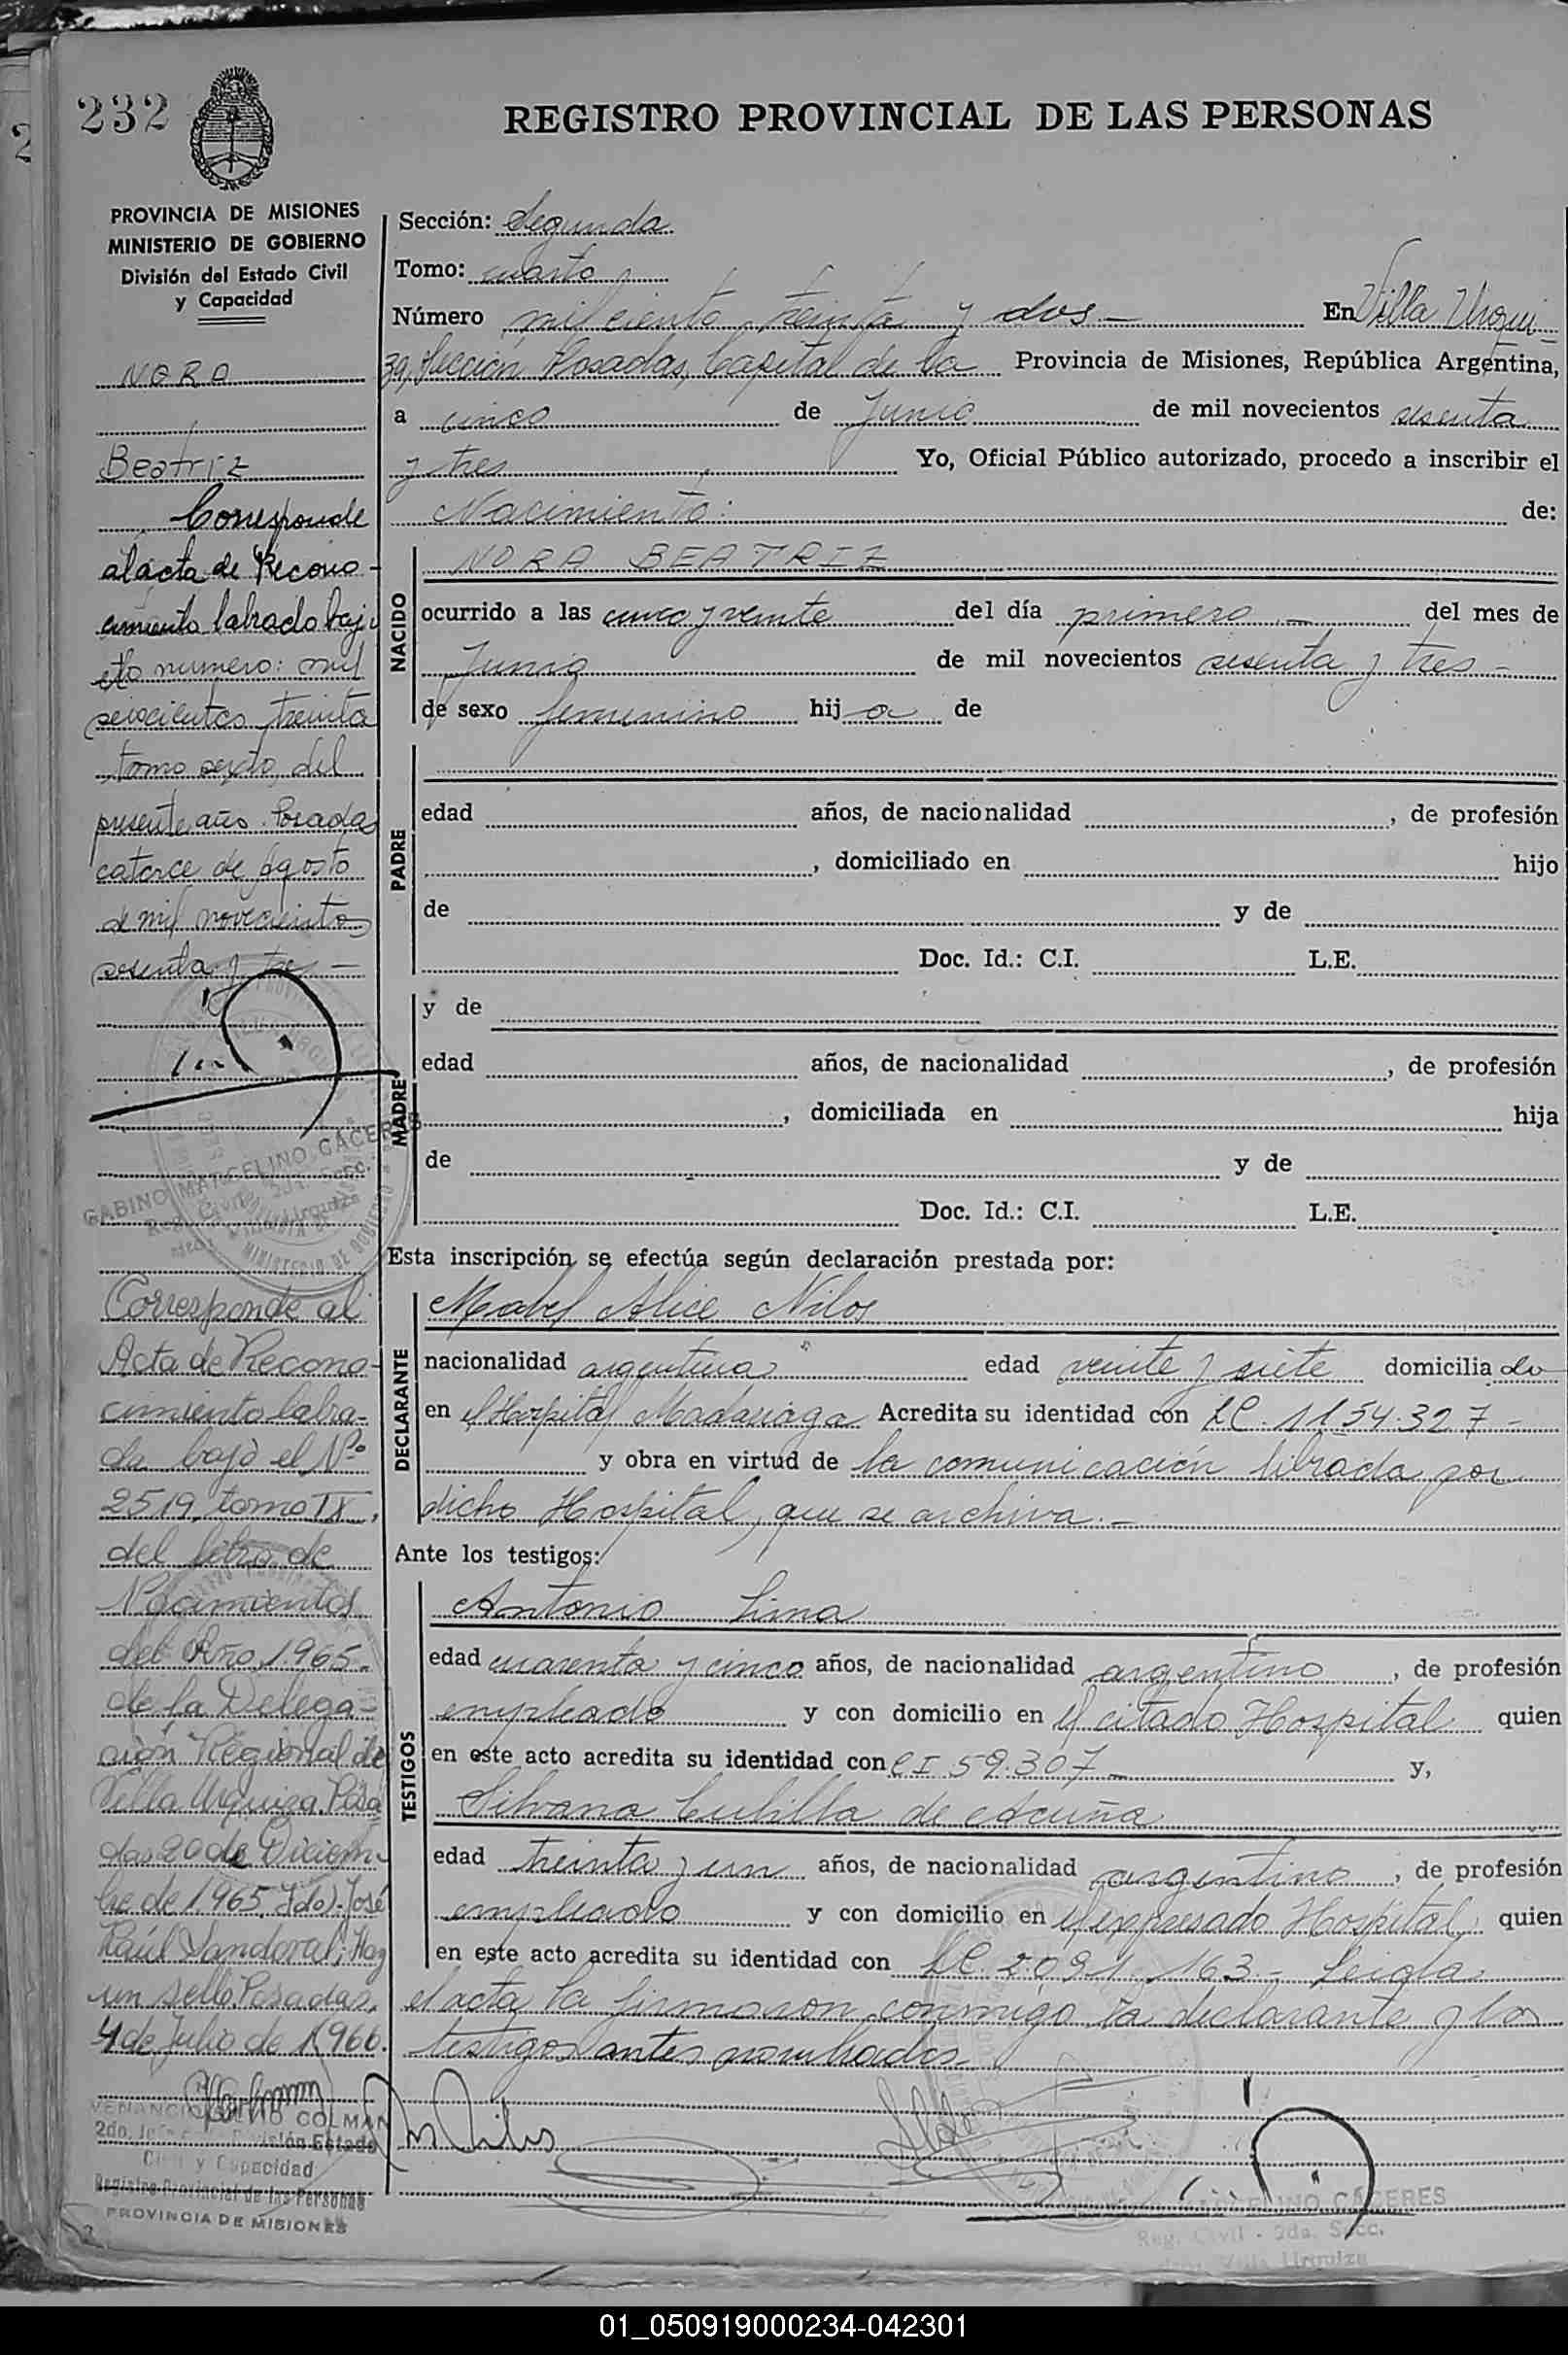 232
REGISTRO PROVINCIAL DE LAS PERSONAS
PROVINCIA DE MISIONES
MINISTERIO DE GOBIERNO
División del Estado Civil
y Capacidad
NORA
Beatriz
Corresponde
al acta de Recono-
cimiento labrado bajo
el numero: mil
seiscientos treinta
tomo sexto, del
presente año. Posadas
catorce de agosto
de mil novecientos
sesenta y tres -
GABINO MARCELINO CACERES
Corresponde al
Acta de Recono-
cimiento labra-
da bajo el Nº
2519, tomo IX,
del libro de
Nacimientos
del Año 1.965.
de la Delega-
ción Regional de
Villa Urquiza. Posa
das 20 de Diciem
bre de 1.965. Fdo). José
Raúl Sandoval; Hay
un sello. Posadas,
4 de Julio de 1966.
VENANCIO COLMAN
2do. División Estado
Civil y Capacidad
Registro Provincial de las Personas
PROVINCIA DE MISIONES
Sección: Segunda
Tomo: cuarto
Número mil ciento treinta y dos - En Villa Urqui-
za, Sección Posadas, Capital de la Provincia de Misiones, República Argentina,
a cinco de Junio de mil novecientos sesenta
y tres Yo, Oficial Público autorizado, procedo a inscribir el
Nacimiento: de:
NACIDO
NORA BEATRIZ
ocurrido a las cinco y veinte del día primero - del mes de
Junio de mil novecientos sesenta y tres -
de sexo femenino hij a de
PADRE
edad años, de nacionalidad , de profesión
, domiciliado en hijo
de y de
Doc. Id.: C.I. L.E.
MADRE
y de
edad años, de nacionalidad , de profesión
, domiciliada en hija
de y de
Doc. Id.: C.I. L.E.
Esta inscripción se efectúa según declaración prestada por:
DECLARANTE
Mabel Alice Nilos
nacionalidad argentina edad veinte y siete domicilia do
en el Hospital Madariaga Acredita su identidad con LC. 1154.327 -
y obra en virtud de la comunicación librada por
dicho Hospital, que se archiva. -
Ante los testigos:
TESTIGOS
Antonio Lima
edad cuarenta y cinco años, de nacionalidad argentino , de profesión
empleado y con domicilio en el citado Hospital quien
en este acto acredita su identidad con CI 59.307 - y,
Silvana Cubilla de Acuña
edad treinta y un años, de nacionalidad argentino , de profesión
empleado y con domicilio en el expresado Hospital quien
en este acto acredita su identidad con LC. 2.091.163 - Leida
el acta la firmaron conmigo la declarante y los
testigos antes nombrados -
MARCELINO CACERES
Reg. Civil - 2da. Secc.
Villa Urquiza
01_050919000234-042301